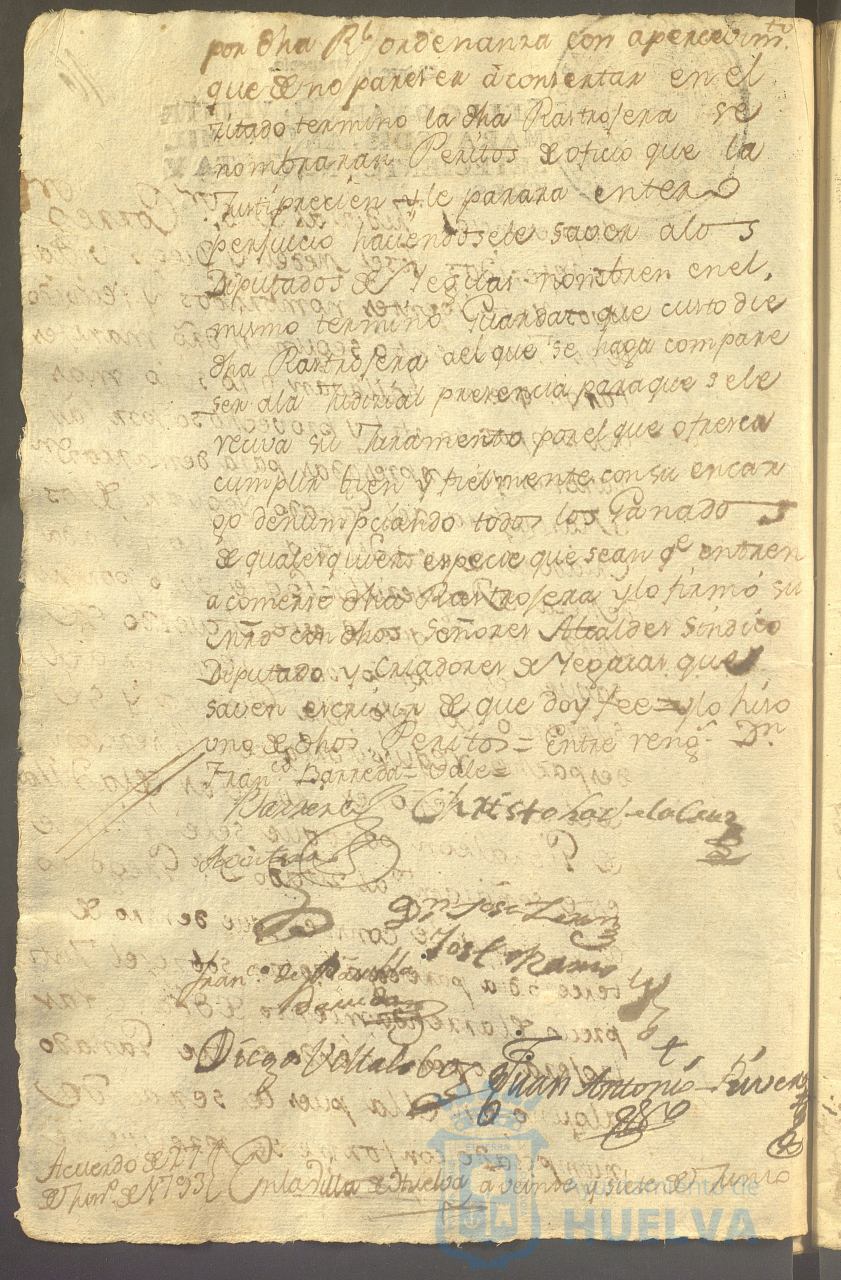 por dha Rl ordenanza con apercevimto
que de no pareser à consertar en el
sitado termino la dha Rastrojera se
nombraran Peritos de oficio que la
Justiprecien y le parara entero
perjuicio haciendosele saver a los
Diputados de Yeguas nombren en el
mismo termino Guarda to que custodie
dha Rastrojera a el que se haga compare
ser ala Judicial precencia para que sele
reciva su Juramento por el que ofresca
cumplir bien y fielmente con su encar
go denumpciando todos los Ganados
de qualesquiera especie que sean qe entren
a comerse dha Rastrojera y lo firmó su
mrd con dhos Señores Alcaldes Sindico
Diputado y Criadores de Yeguas que
saven escrivir de que doy fee = y lo hiso
uno de dhos Peritos = Entre reng.s Dn
Franco Barreda = Vale =
Barrera
Christobal de la Cruz
Dn Jose
José Ramo
Franco de Paula
Diego
Juan Antonio Rivera
Acuerdo de 27
de Juno de 1793
En la Villa de Huelva a veinte y siete de Junio
Ayuntamiento de
HUELVA